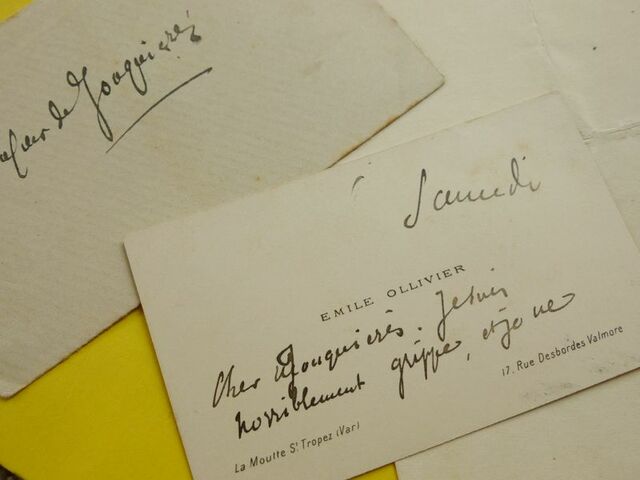 de Jouquières
Samedi
EMILE OLLIVIER
Cher Jouquières. Je suis
horriblement grippé, et je ne
17. Rue Desbordes Valmore
La Moutte St Tropez (Var)